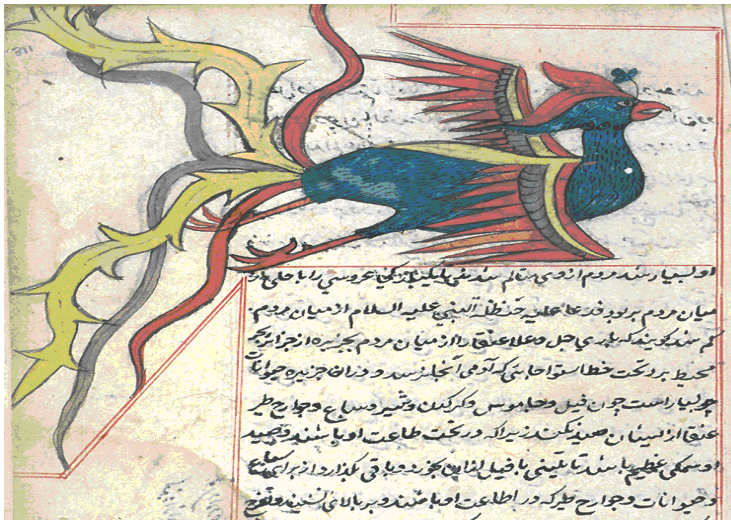 او بسیار شد مردم از وی متالم شدند فی را با حلی از
میان مردم بربود فدعا علیه حنظلة النبی علیه السلام از میان مردم
کم شد کویند که باری جل و علا عنقا را از میان مردم بجزیره از جزایر بحر
محیط برد تحت خط استوا جایی که آدمی آنجا نرسد و در آن جزیره حیوانات
بسیار است چون فیل و جاموس و کرکدن و شیر و سباع و جوارح طیر
عنقا از ایشان صید نکند زیرا که در تحت طاعت او باشند و صید
او سمکی عظیم باشد یا تنینی یا فیل از این بخورد و باقی بگذارد از برای سباع
و حیوانات و جوارح طیر که در اطاعت او باشند و بر بالای نشیند و تفرج